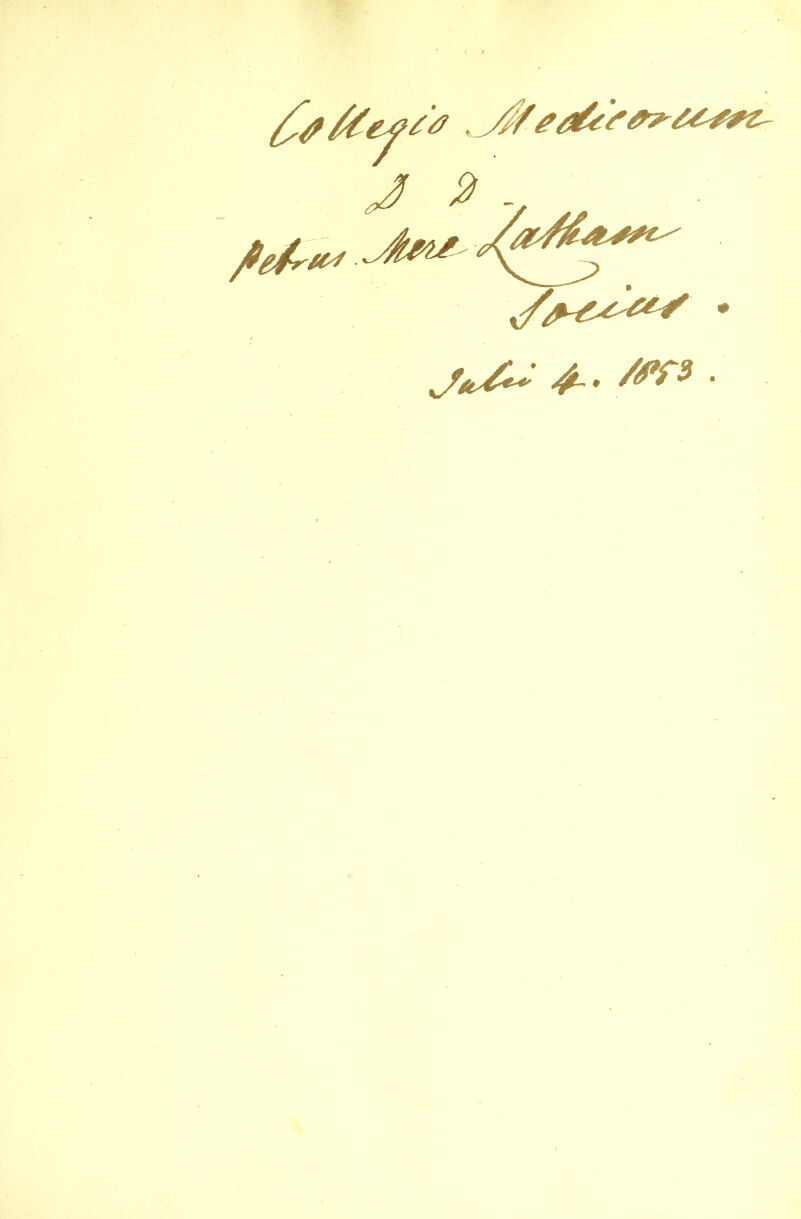 Collegio Medicorum
D D
Petrus Mere Latham
Socius .
Julii 4. 1853 .